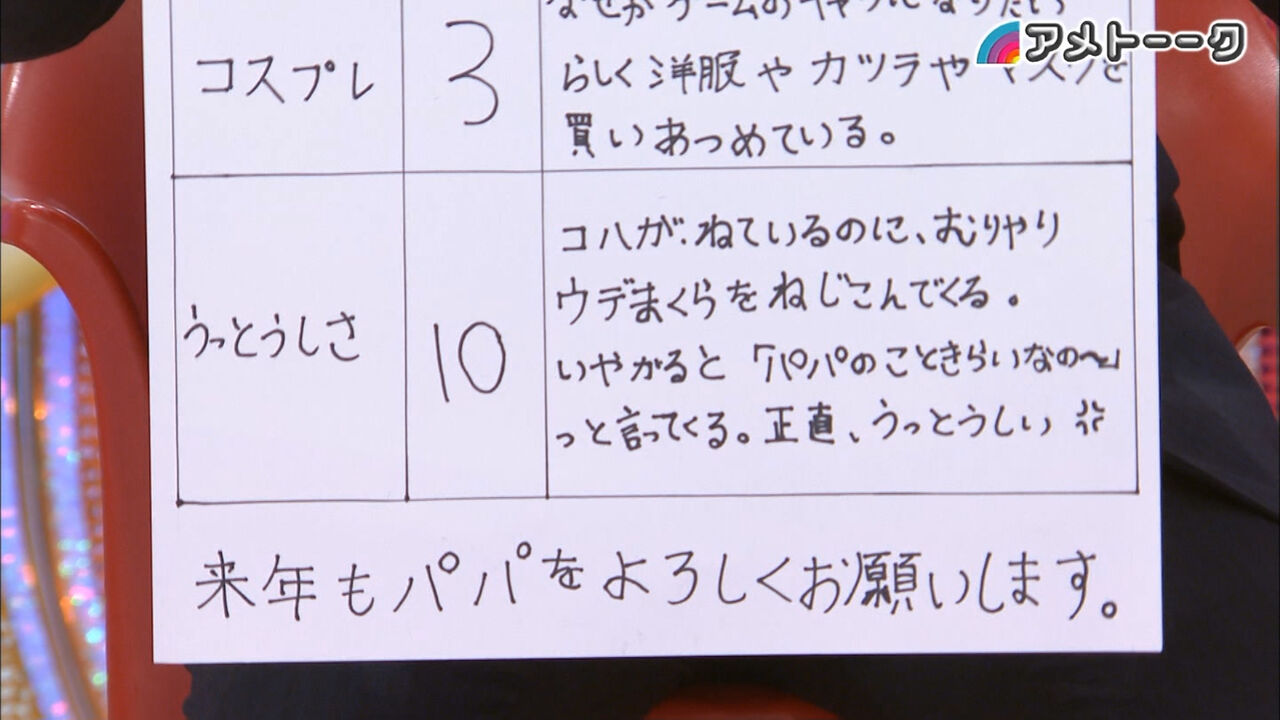 アメトーーク
なぜかゲームのキャラになりたい
コスプレ
3
らしく洋服やカツラやマスクを
買いあつめている。
うっとうしさ
10
コハが、ねているのに、むりやり
ウデまくらをねじこんでくる。
いやがると「パパのこときらいなの〜」
っと言ってくる。正直、うっとうしい
来年もパパをよろしくお願いします。